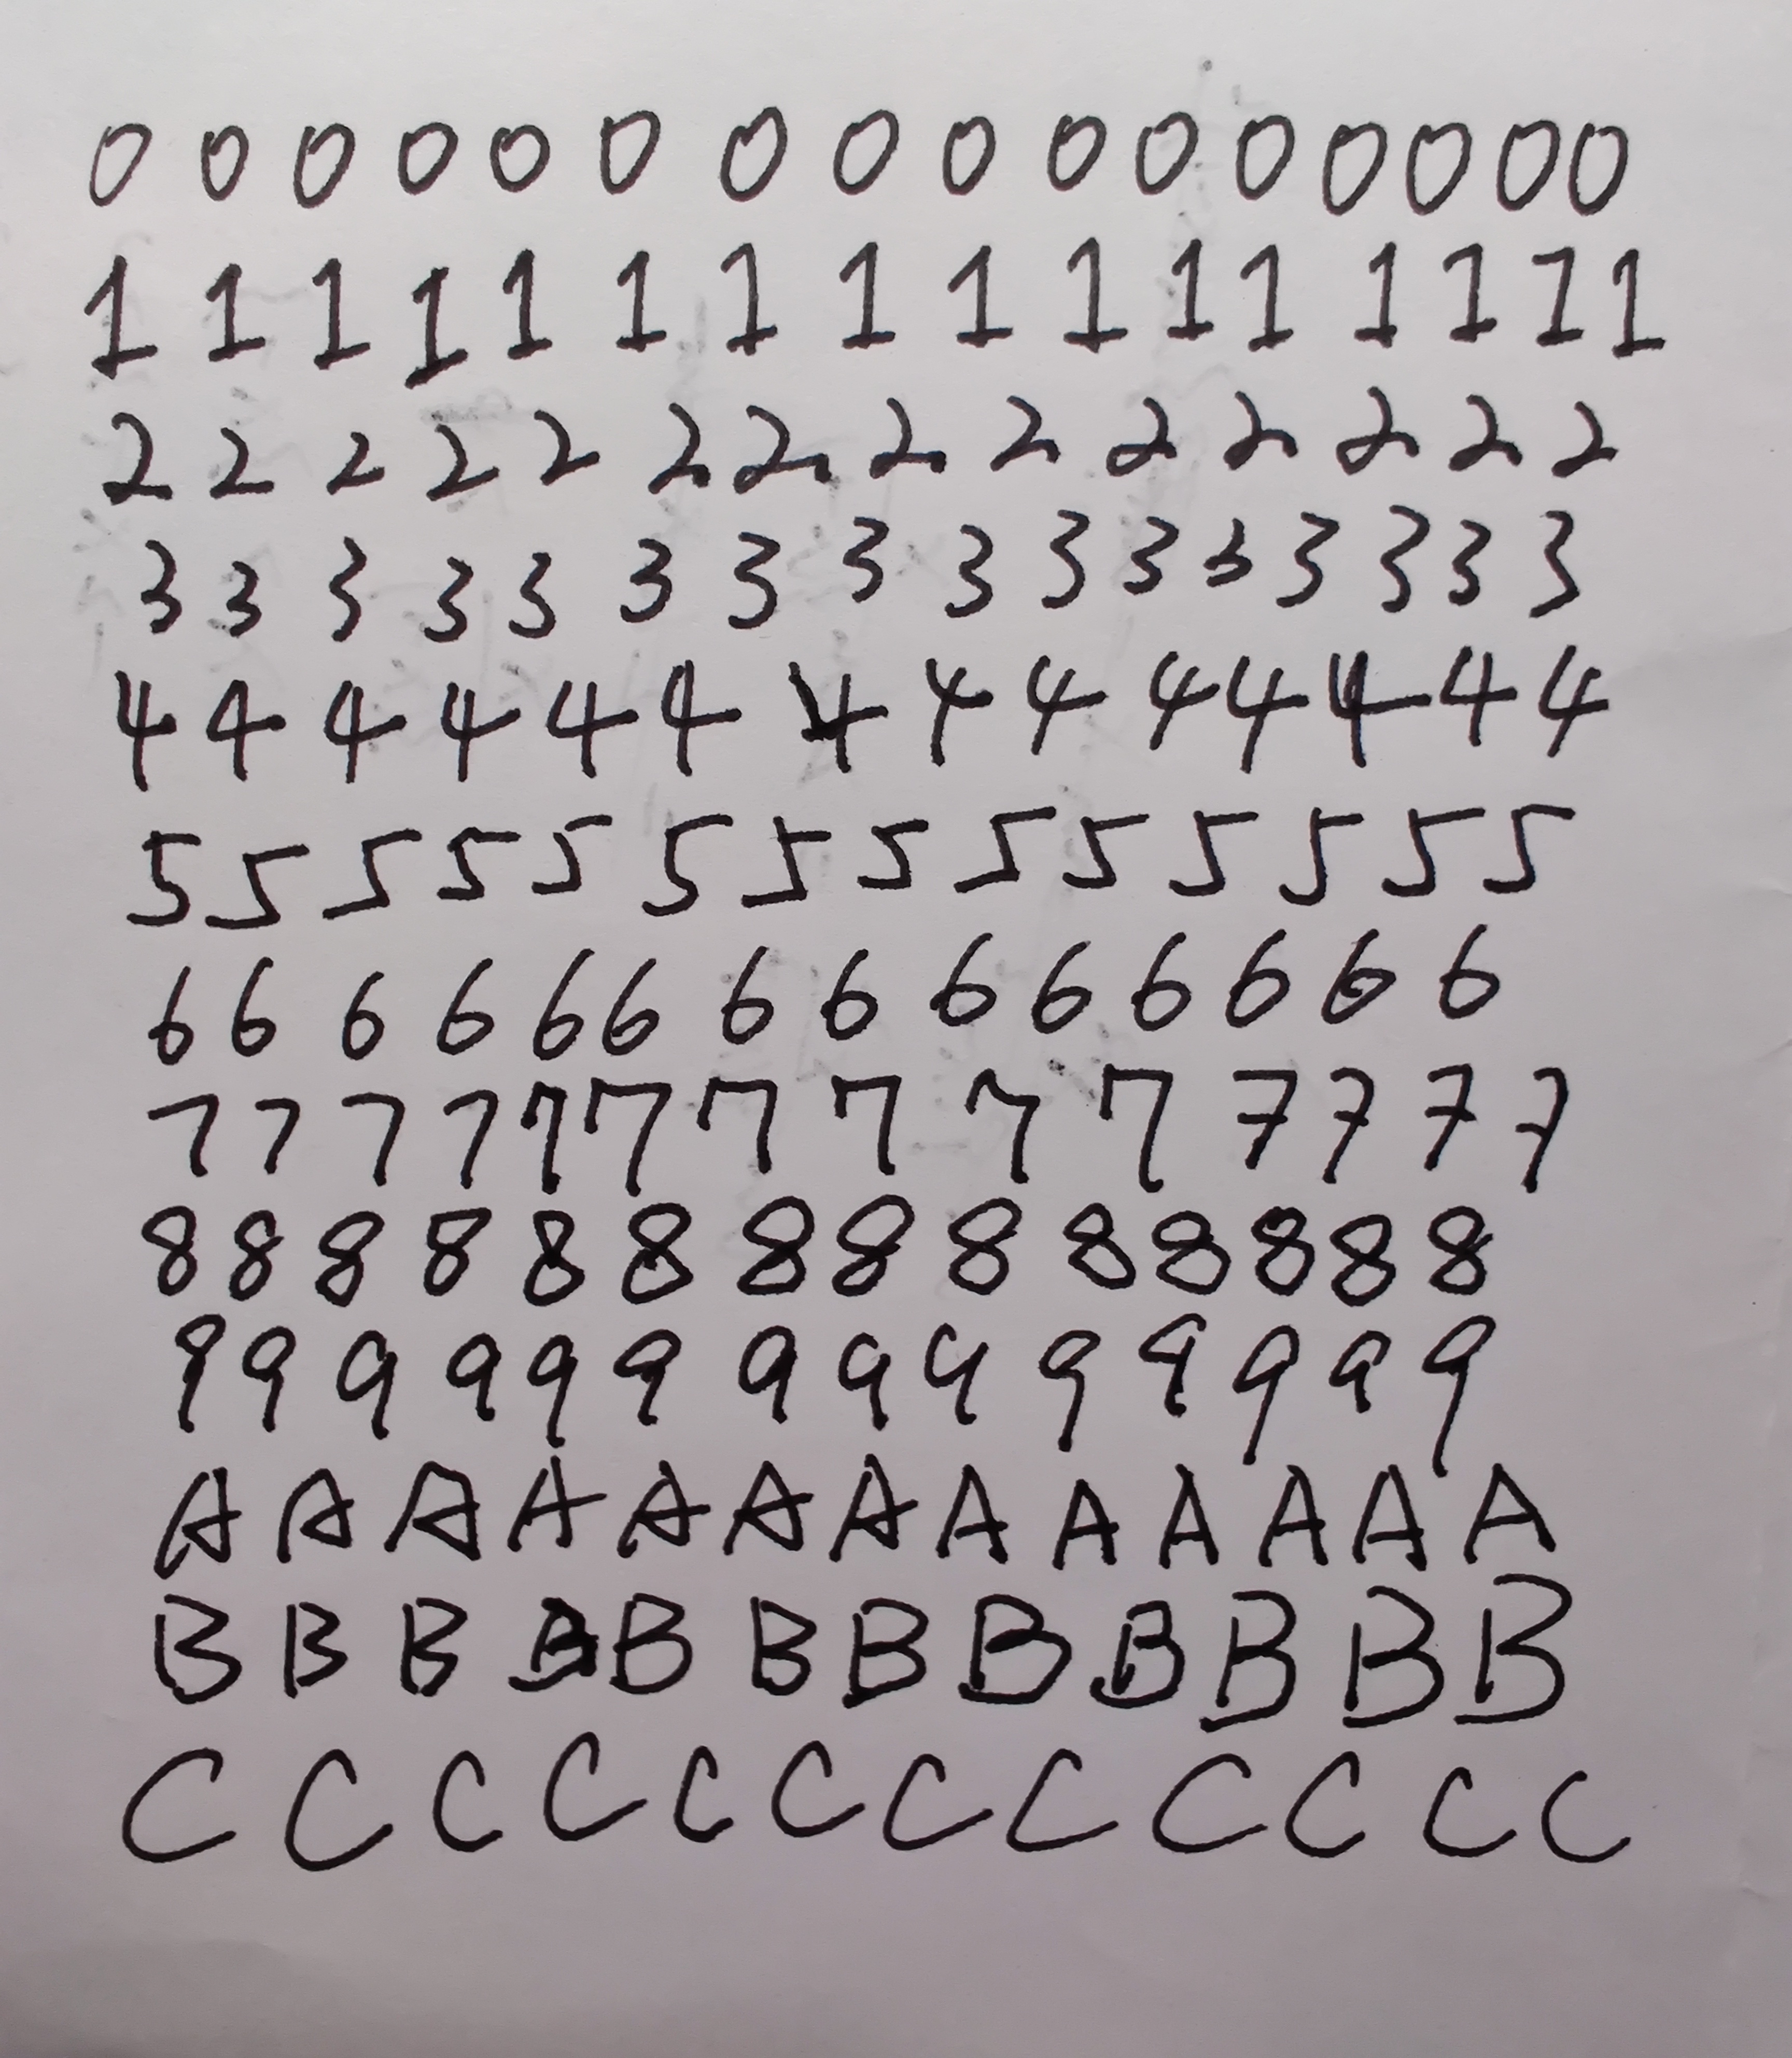 0 0 0 0 0 0 0 0 0 0 0 0 0 0 0 0
1 1 1 1 1 1 1 1 1 1 1 1 1 1 1 1
2 2 2 2 2 2 2 2 2 2 2 2 2 2
3 3 3 3 3 3 3 3 3 3 3 3 3 3 3 3
4 4 4 4 4 4 4 4 4 4 4 4 4 4
5 5 5 5 5 5 5 5 5 5 5 5 5 5
6 6 6 6 6 6 6 6 6 6 6 6 6 6
7 7 7 7 7 7 7 7 7 7 7 7 7 7
8 8 8 8 8 8 8 8 8 8 8 8 8 8
9 9 9 9 9 9 9 9 9 9 9 9 9 9
A A A A A A A A A A A A A
B B B B B B B B B B B B
C C C C C C C C C C C C